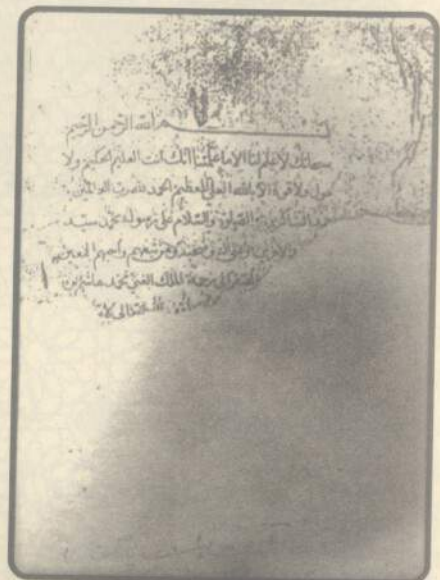 بسم الله الرحمن الرحيم
سبحانك لا علم لنا الا ما علمتنا انك انت العليم الحكيم ولا
حول ولا قوة الا بالله العلي العظيم الحمد لله رب العالمين
حمد الشاكرين والصلوة والسلام على رسوله محمد سيد
والاخرين وعلى اله ومن تبعهم واحبهم اجمعين
الى رحمة الملك الغني محمد هاشم بن
الله تعالى